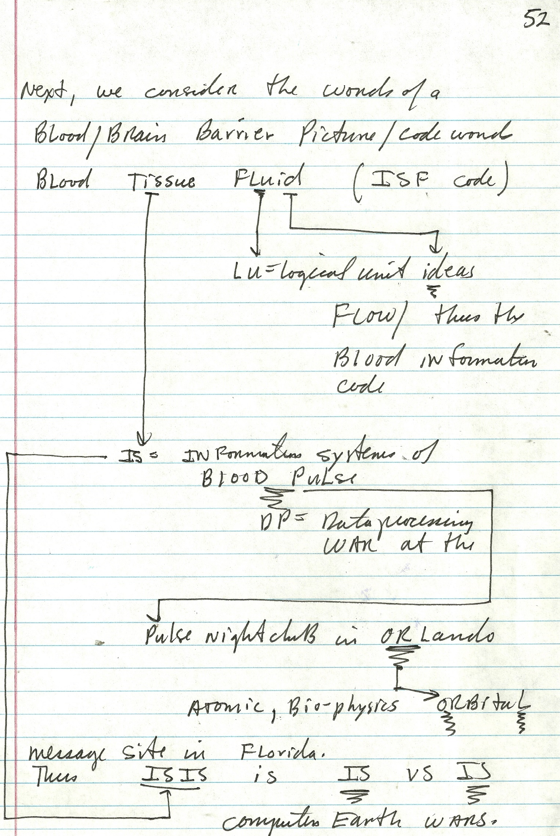 52
Next, we consider the words of a
Blood/Brain Barrier Picture/code word
Blood Tissue Fluid (ISF code)
LU=logical unit ideas
FLOW/ thus the
Blood information
code
IS= INFormation systems of
BLOOD PuLse
DP= Data processing
WAR at the
Pulse nightcluB in ORLando
Atomic, Bio-physics ORBitaL
message site in Florida.
Thus ISIS is IS VS IS
computer Earth WARS.